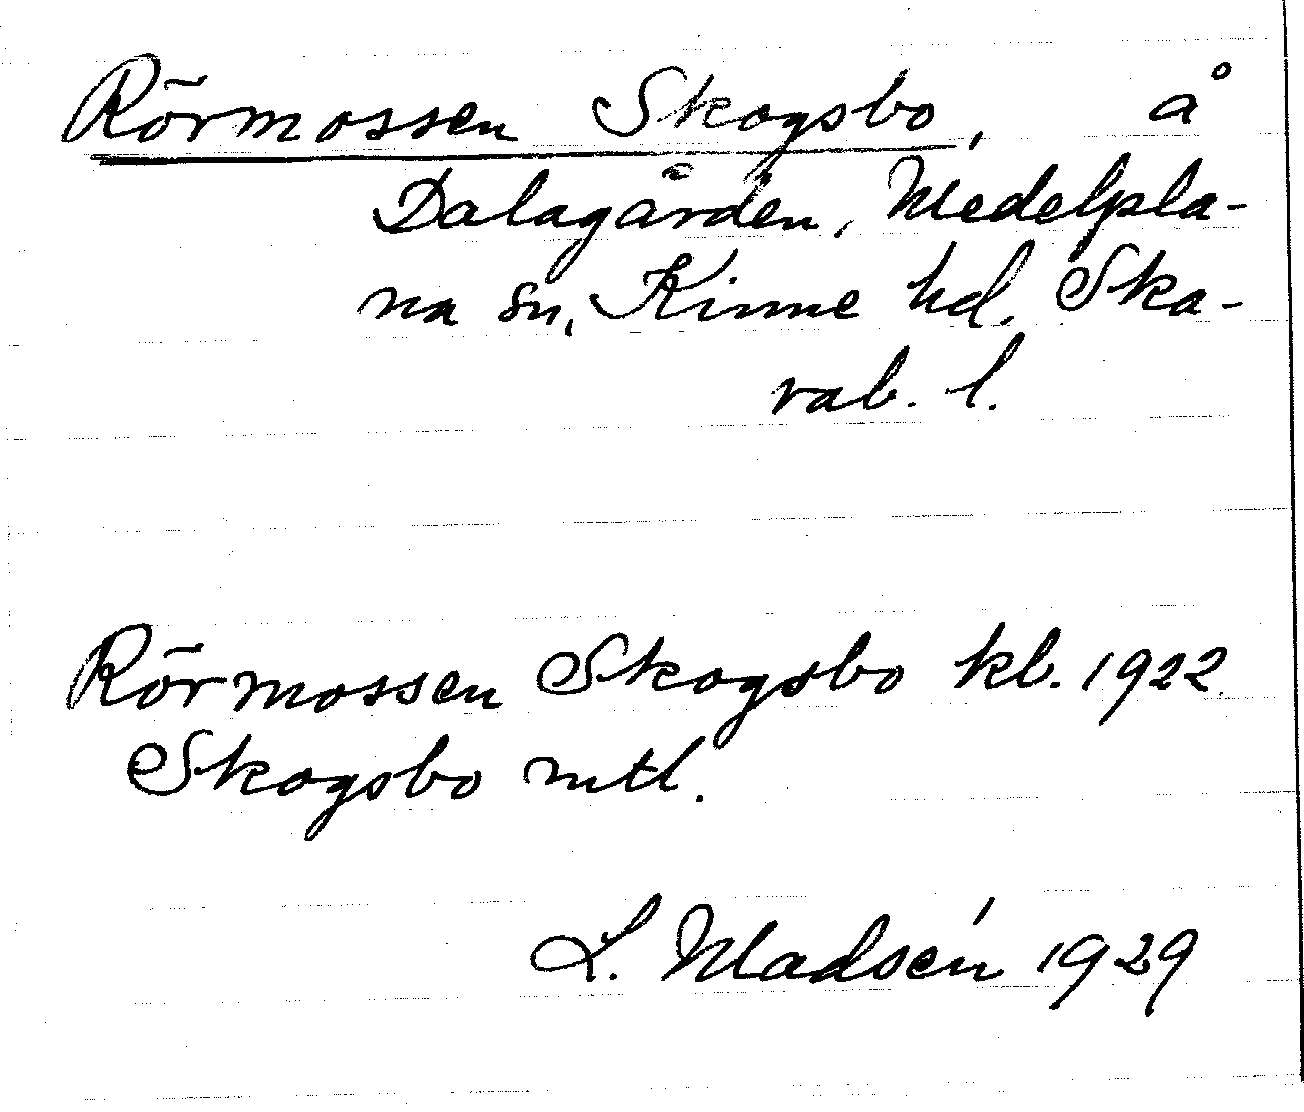 Rörmossen Skogsbo, å
Dalagården, Medelpla-
na sn, Kinne hd. Ska-
rab. l.
Rörmossen Skogsbo kb. 1922
Skogsbo mtl.
L. Madsén 1929